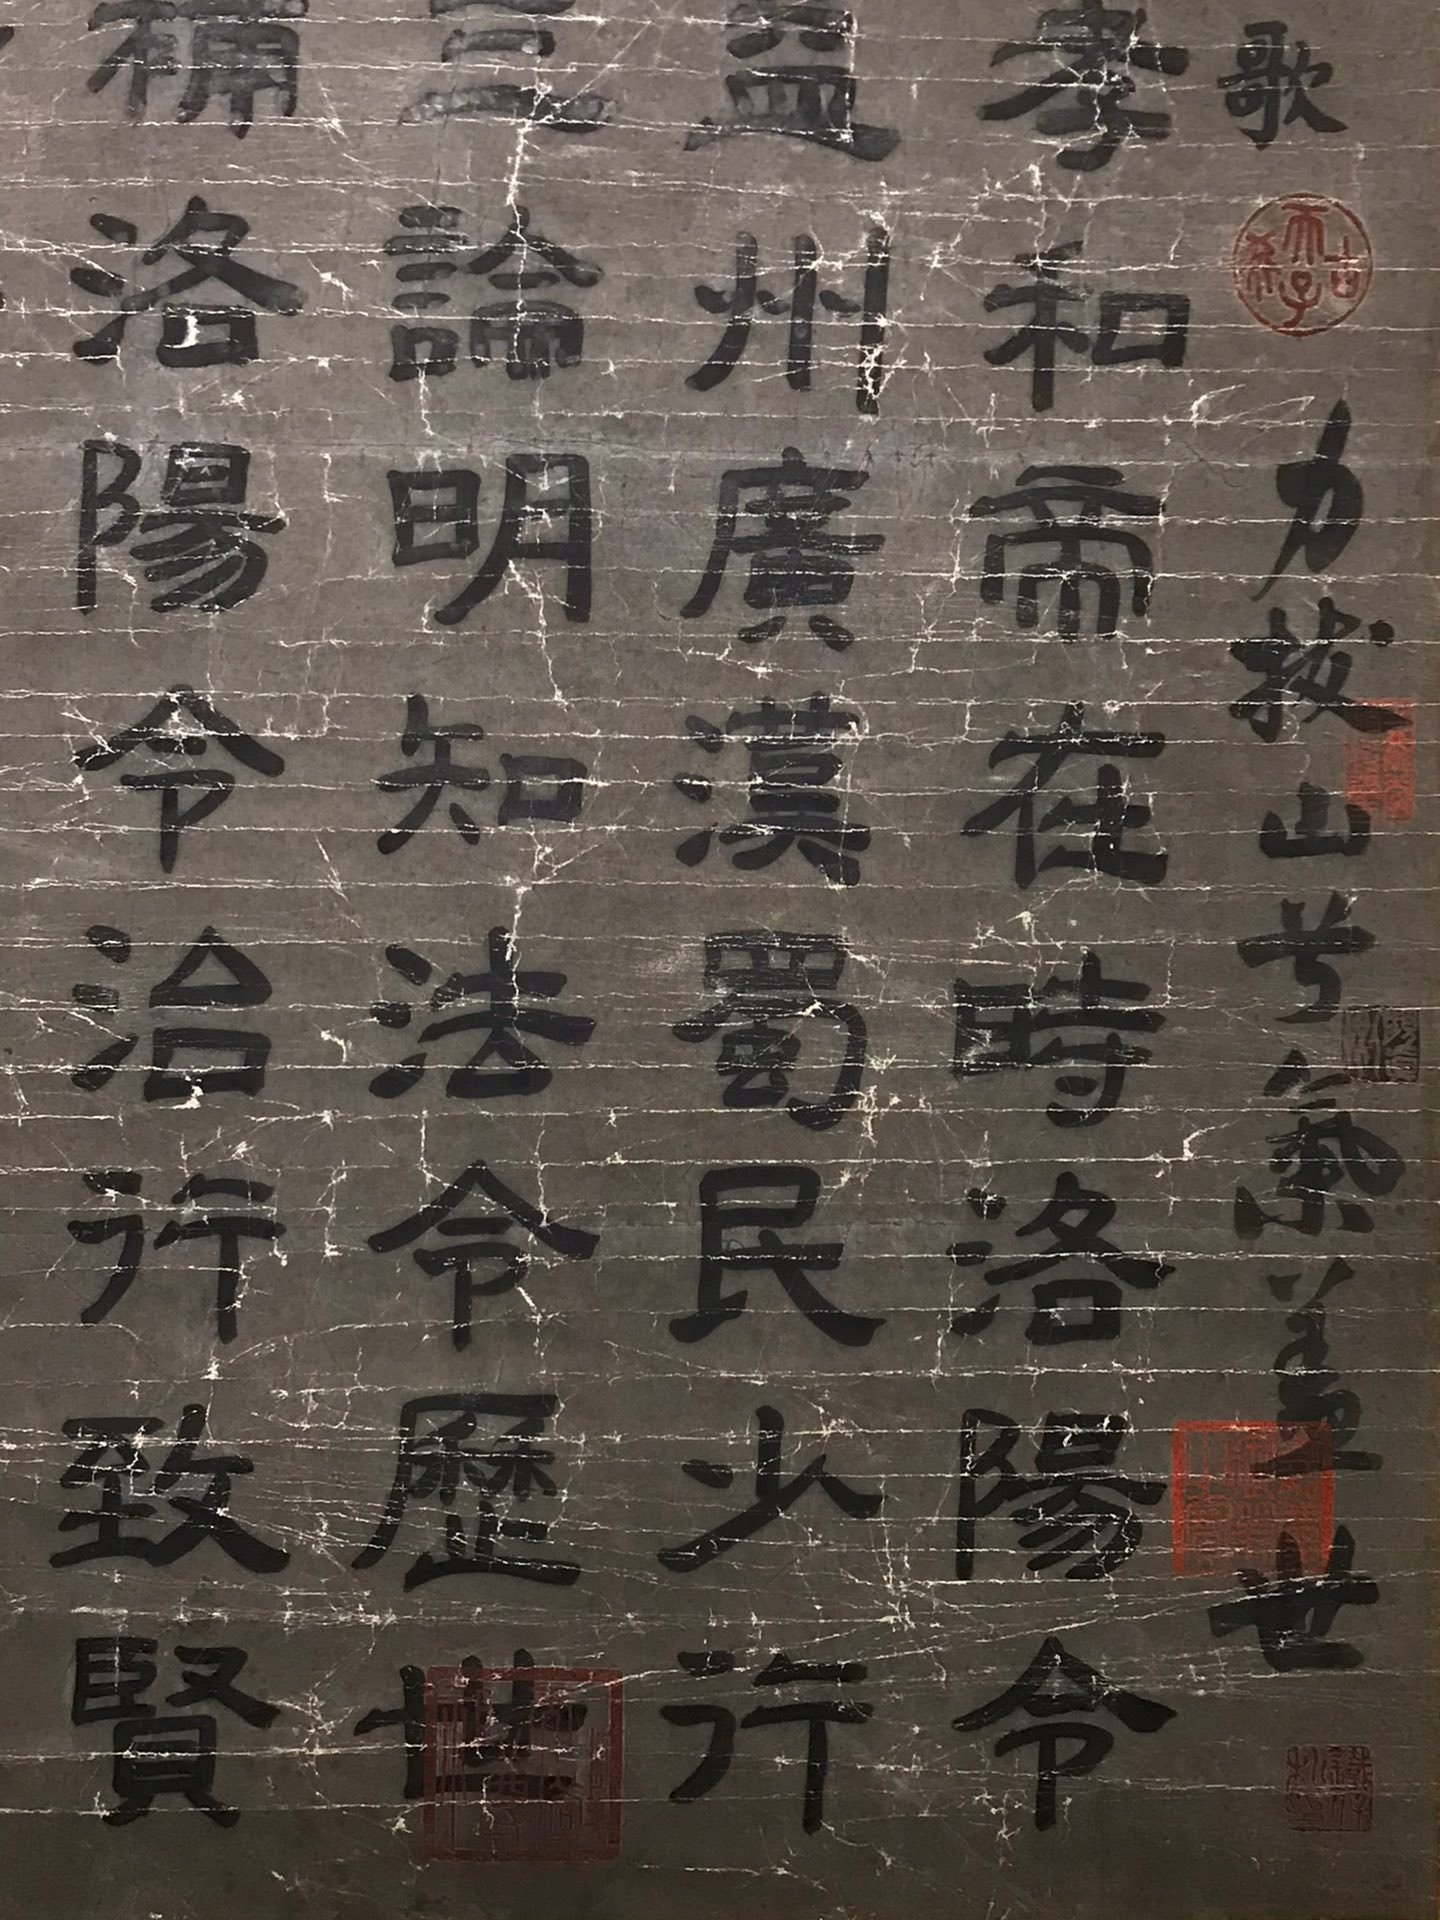 歌
古希天子
力拔山兮氣蓋世
孝和帝在時洛陽令
益州廣漢蜀民少行
論明知法令歷世
補洛陽令治行致賢